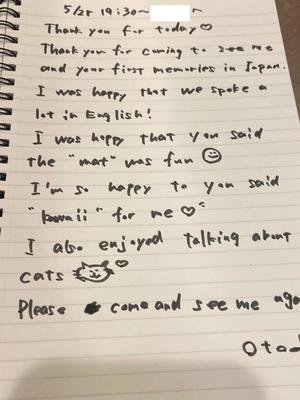 5/25 19:30~
Thank you for today♡
Thank you for coming to see me
and your first memories in Japan.
I was happy that we spoke a
lot in English!
I was happy that you said
the "mat" was fun ☺
I'm so happy to you said
"kawaii" for me ♡
I also enjoyed talking about
cats ♡
Please come and see me